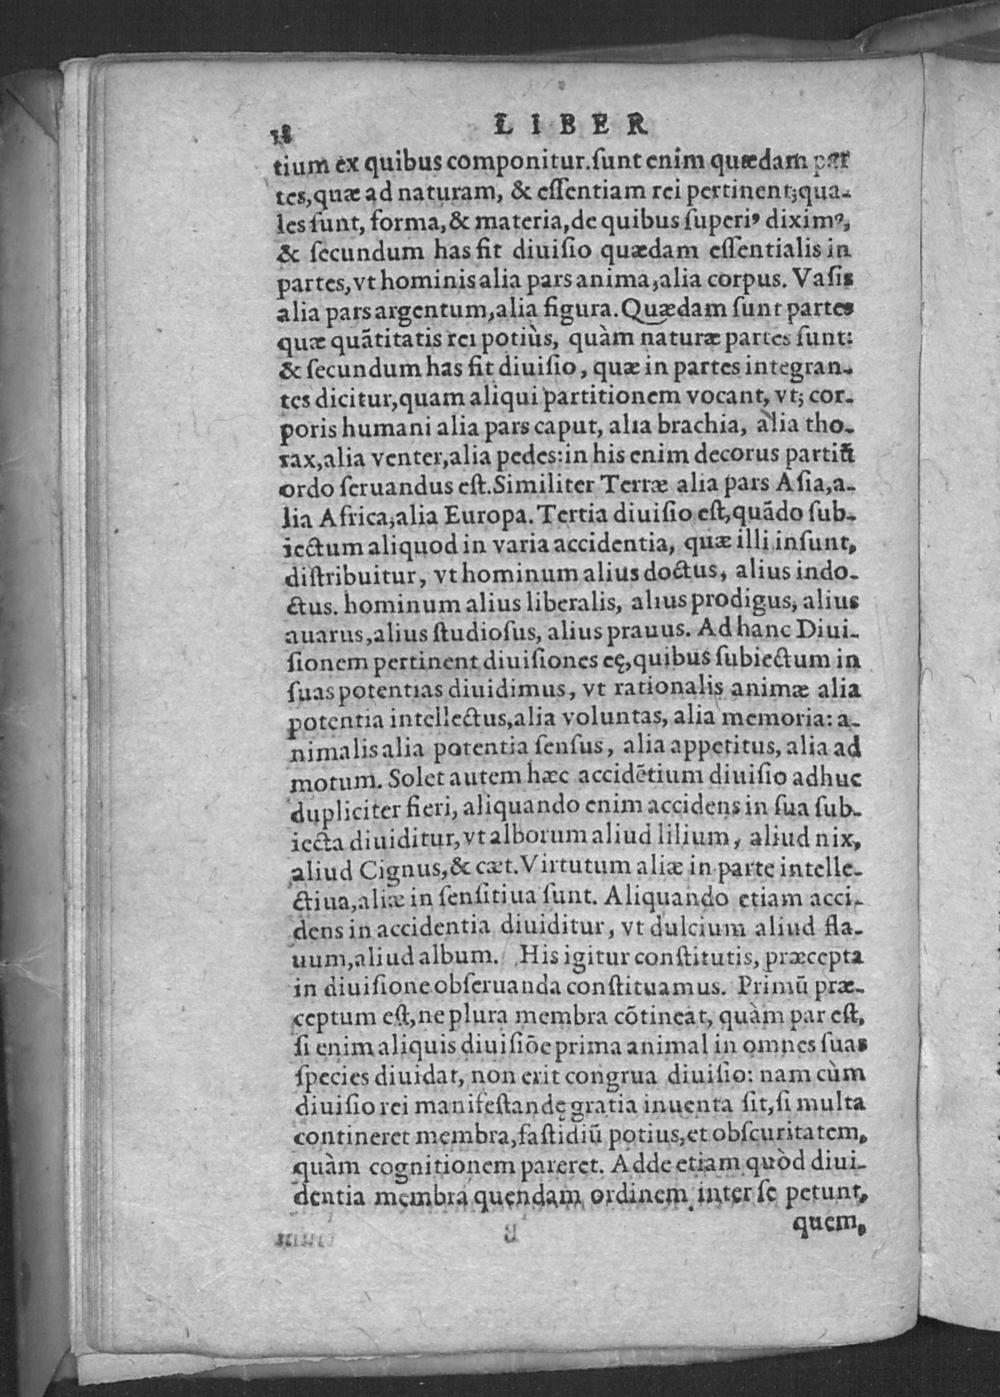 18 LIBER
tium ex quibus componitur. sunt enim quædam par
tes, quæ ad naturam, & essentiam rei pertinent; qua-
les sunt, forma, & materia, de quibus superiꝰ diximꝰ,
& secundum has fit diuisio quædam essentialis in
partes, vt hominis alia pars anima, alia corpus. Vasis
alia pars argentum, alia figura. Quædam sunt partes
quæ quãtitatis rei potiùs, quàm naturæ partes sunt:
& secundum has fit diuisio, quæ in partes integran-
tes dicitur, quam aliqui partitionem vocant, vt; cor-
poris humani alia pars caput, alia brachia, alia tho-
rax, alia venter, alia pedes: in his enim decorus partiũ
ordo seruandus est. Similiter Terræ alia pars Asia, a-
lia Africa, alia Europa. Tertia diuisio est, quãdo sub-
iectum aliquod in varia accidentia, quæ illi insunt,
distribuitur, vt hominum alius doctus, alius indo-
ctus. hominum alius liberalis, alius prodigus, alius
auarus, alius studiosus, alius prauus. Ad hanc Diui-
sionem pertinent diuisiones eę, quibus subiectum in
suas potentias diuidimus, vt rationalis animæ alia
potentia intellectus, alia voluntas, alia memoria: a-
nimalis alia potentia sensus, alia appetitus, alia ad
motum. Solet autem hæc accidẽtium diuisio adhuc
dupliciter fieri, aliquando enim accidens in sua sub-
iecta diuiditur, vt alborum aliud lilium, aliud nix,
aliud Cignus, & cæt. Virtutum aliæ in parte intelle-
ctiua, aliæ in sensitiua sunt. Aliquando etiam acci-
dens in accidentia diuiditur, vt dulcium aliud fla-
uum, aliud album. His igitur constitutis, præcepta
in diuisione obseruanda constituamus. Primũ præ-
ceptum est, ne plura membra cõtineat, quàm par est,
si enim aliquis diuisiõe prima animal in omnes suas
species diuidat, non erit congrua diuisio: nam cùm
diuisio rei manifestandę gratia inuenta sit, si multa
contineret membra, fastidiũ potius, et obscuritatem,
quàm cognitionem pareret. Adde etiam quòd diui-
dentia membra quendam ordinem inter se petunt,
quem,